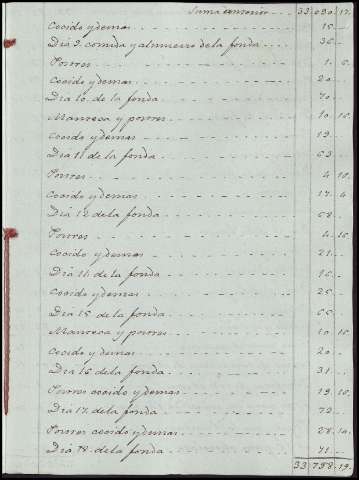 Suma anterior 33,090,17.
Cocido y demas 15
Dia 9. comida y almuerzo de la fonda 36
Postres 1. 15.
Cocido y demas 20
Dia 10. de la fonda 70
Manteca y postres 10. 15.
Cocido y demas 19
Dia 11 de la fonda 63
Postres 4 15.
Cocido y demas 17. 4
Dia 12 de la fonda 68
Postres 4. 15.
Cocido y demas 21
Dia 14 de la fonda
Cocido y demas 25
Dia 15 de la fonda 65
Manteca y postres 10 15
Cocido y demas 20
Dia 16 de la fonda 31
Postres cocido y demas 19. 10.
Dia 17. de la fonda 72
Postres cocido y demas 28. 10.
Dia 18. de la fonda 71
33,798.19.